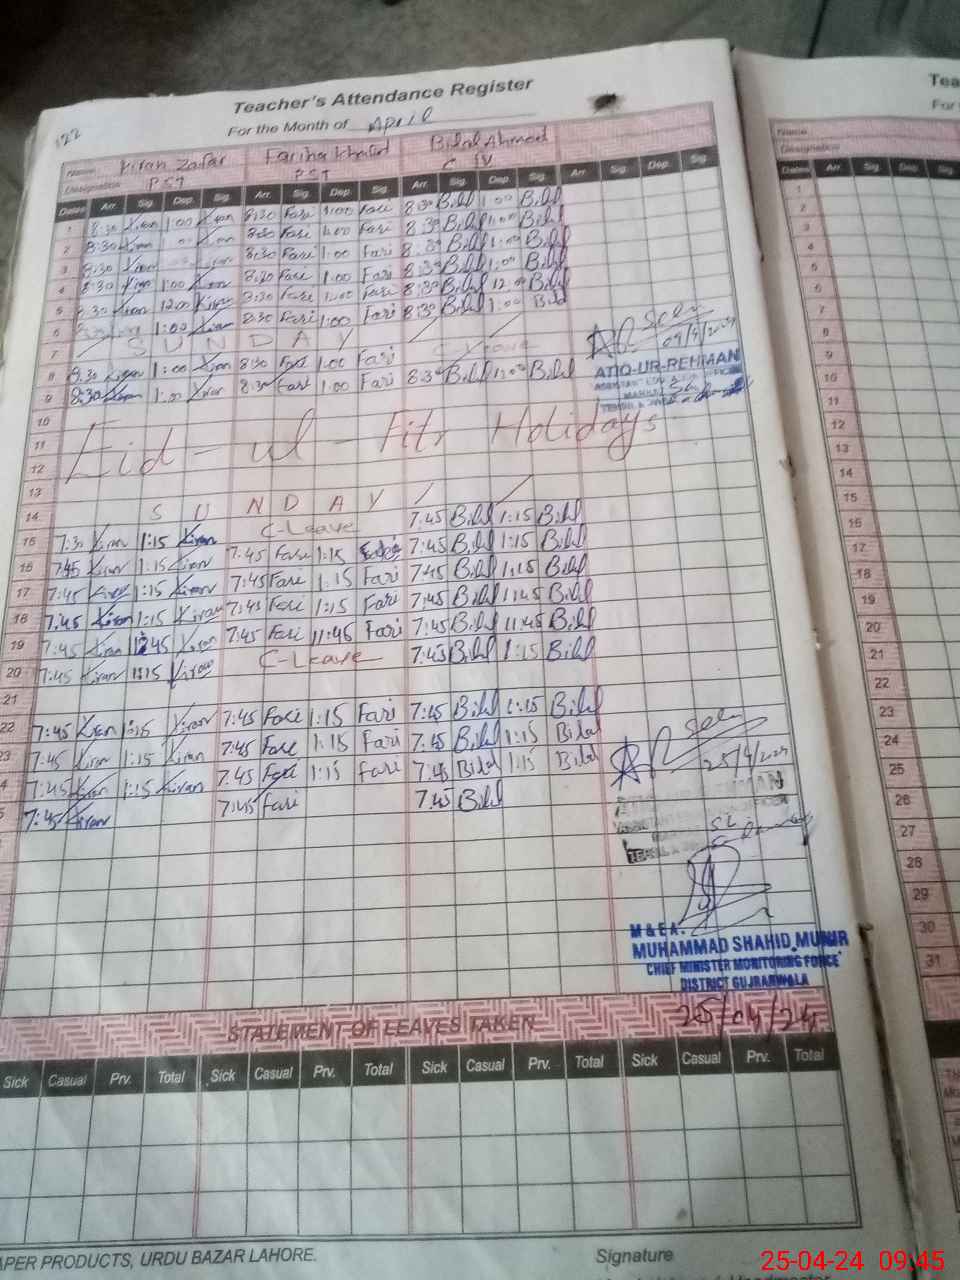 122
Teacher's Attendance Register
For the Month of April
Name: Kiran Zafar Fariha Khalid Bilal Ahmad
Designation PST PST C IV
Dates Arr. Sig. Dep. Sig. Arr. Sig. Dep. Sig. Arr. Sig. Dep. Sig. Arr. Sig. Dep. Sig.
1 8:30 Kiran 1:00 Kiran 8:30 Fari 1:00 Fari 8:30 Bilal 1:00 Bilal
2 8:30 Kiran 1:00 Kiran 8:30 Fari 1:00 Fari 8:30 Bilal 1:00 Bilal
3 8:30 Kiran Kiran 8:30 Fari 1:00 Fari 8:30 Bilal 1:00 Bilal
4 8:30 Kiran 1:00 Kiran 8:30 Fari 1:00 Fari 8:30 Bilal 1:00 Bilal
5 8:30 Kiran 12:00 Kiran 8:30 Fari Fari 8:30 Bilal 12:00 Bilal
6 1:00 Kiran 8:30 Fari 1:00 Fari 8:30 Bilal 1:00 Bilal
7 SUNDAY
8 8:30 Kiran 1:00 Kiran 8:30 Fari 1:00 Fari C-Leave
9 8:30 Kiran 1:00 Kiran 8:30 Fari 1:00 Fari 8:30 Bilal 1:00 Bilal
ATIQ-UR-REHMAN
10
11 Eid-ul-Fitr Holidays
12
13
14 SUNDAY
15 7:30 Kiran 1:15 Kiran C-Leave 7:45 Bilal 1:15 Bilal
16 7:45 Kiran 1:15 Kiran 7:45 Fari 1:15 Fari 7:45 Bilal 1:15 Bilal
17 7:45 Kiran 1:15 Kiran 7:45 Fari 1:15 Fari 7:45 Bilal 1:15 Bilal
18 7:45 Kiran 1:15 Kiran 7:45 Fari 1:15 Fari 7:45 Bilal 11:45 Bilal
19 7:45 Kiran Kiran 7:45 Fari 11:45 Fari 7:45 Bilal 11:45 Bilal
20 7:45 Kiran 1:15 Kiran C-Leave 7:45 Bilal 1:15 Bilal
21
22 7:45 Kiran 1:15 Kiran 7:45 Fari 1:15 Fari 7:45 Bilal 1:15 Bilal
23 7:45 Kiran 1:15 Kiran 7:45 Fari 1:15 Fari 7:45 Bilal 1:15 Bilal
7:45 Kiran 1:15 Kiran 7:45 Fari 1:15 Fari 7:45 Bilal 1:15 Bilal
7:45 Kiran 7:45 Fari 7:45 Bilal
25/4/2024
M & E A.
MUHAMMAD SHAHID MUNIR
CHIEF MINISTER MONITORING FORCE
DISTRICT GUJRANWALA
25/04/24
STATEMENT OF LEAVES TAKEN
Sick Casual Prv. Total Sick Casual Prv. Total Sick Casual Prv. Total Sick Casual Prv. Total
APER PRODUCTS, URDU BAZAR LAHORE.
Signature
Tea
For
Name
Designation
Dates Arr. Sig. Dep. Sig. Arr.
1
2
3
4
5
6
7
8
9
10
11
12
13
14
15
16
17
18
19
20
21
22
23
24
25
26
27
28
29
30
31
25-04-24 09:45